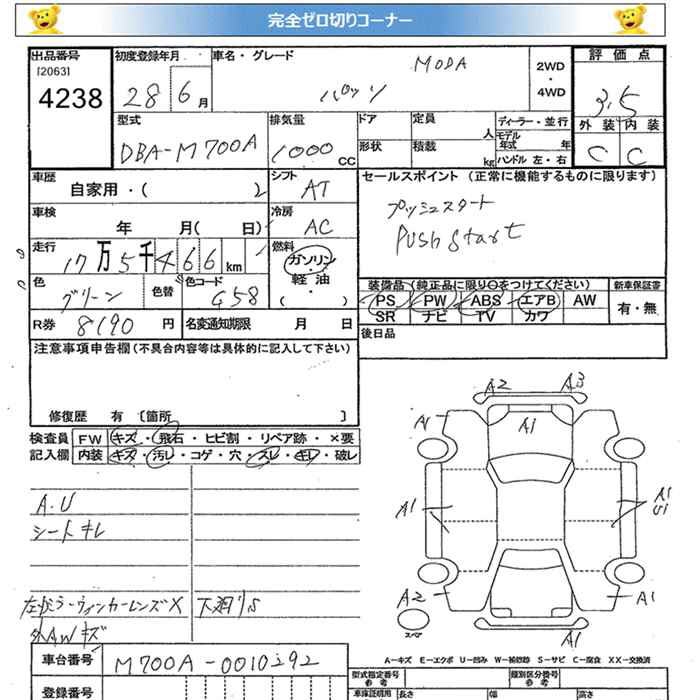 完全ゼロ切りコーナー
出品番号 初度登録年月 車名・グレード 評価点
[2063] MODA 2WD
4238 28 6月 パッソ ・ 4WD 3.5
型式 排気量 ドア 定員 ディーラー・並行 外装 内装
DBA-M700A 1000 CC 人 モデル年式 年 C C
形状 積載 kg ハンドル 左・右
車歴 シフト セールスポイント (正常に機能するものに限ります)
自家用・( ) AT
プッシュスタート
車検 冷房
年 月( 日) AC Push Start
走行 燃料
17万5千466km ガソリン・
色 色替 色コード 軽油・ 装備品 (純正品に限り○をつけてください) 新車保証書
グリーン G58 ( ) PS PW ABS エアB AW 有・無
R券 8190円 名変通知期限 月 日 SR ナビ TV カワ
注意事項申告欄(不具合内容等は具体的に記入して下さい) 後日品
修復歴 有 〔箇所 〕
検査員 FW キズ・飛石・ヒビ割・リペア跡・×要
記入欄 内装 キズ・汚レ・コゲ・穴・スレ・キレ・破レ
A2 A3
A1 A1
A.U
シートキレ
A1 A1
U1
左ミラーウィンカーレンズX 下廻りS
A2 A1
外AWキズ スペア A1
A-キズ E-エクボ U-凹み W-補修跡 S-サビ C-腐食 XX-交換済
車台番号 M700A-0010292
型式指定番号 参考 類別区分番号 参考
登録番号 車庫証明用 長さ 幅 高さ